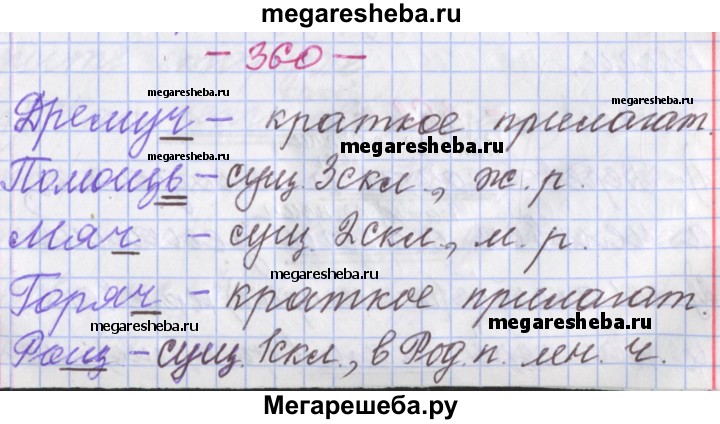 megaresheba.ru
- 360 -
megaresheba.ru
Дремуч - краткое прилагат.
megaresheba.ru
Помощь - сущ. 3 скл., ж. р.
Мяч - сущ. 2 скл., м. р.
megaresheba.ru
Горяч - краткое прилагат.
megaresheba.ru
megaresheba.ru
Рощ - сущ. 1 скл., в Род. п. мн. ч.
Мегарешеба.ру